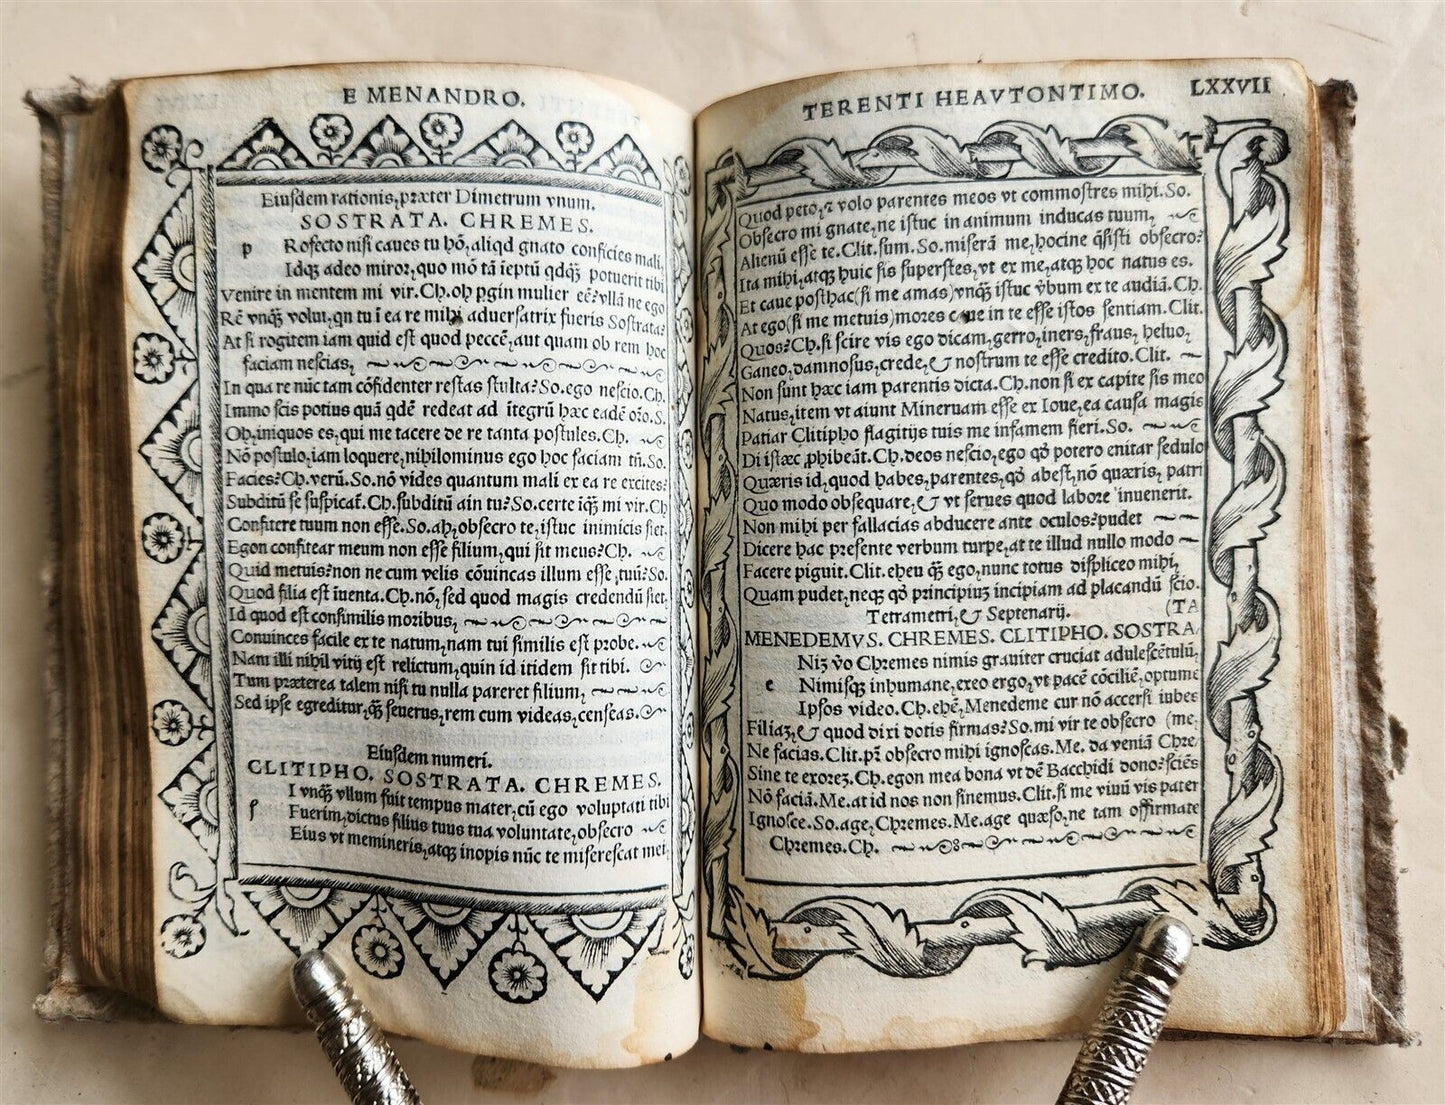 E MENANDRO.
Eiusdem rationis, præter Dimetrum vnum.
SOSTRATA. CHREMES.
p Rofecto nisi caues tu hō, aliqd gnato conficies mali,
Idq; adeo miror, quo mō tā ieptū qdq̃; potuerit tibi
Venire in mentem mi vir. Ch. oh pgin mulier eē? vllā ne ego
Rē vnq̃; volui, qn tu ī ea re mihi aduersatrix fueris Sostrata?
At si rogitem iam quid est quod peccē, aut quam ob rem hoc
faciam nescias,
In qua re nūc tam cōfidenter restas stulta? So. ego nescio. Ch.
Immo scis potius quā qdē redeat ad ītegrū hæc eadē oro. S.
Oh, iniquos es, qui me tacere de re tanta postules. Ch.
Nō postulo, iam loquere, nihilominus ego hoc faciam tñ. So.
Facies? Ch. verū. So. nō vides quantum mali ex ea re excites?
Subditū se suspicat̃. Ch. subditū ain tu? So. certe iq̃; mi vir. Ch
Confitere tuum non esse. So. ah, obsecro te, istuc inimicis siet.
Egon confitear meum non esse filium, qui sit meus? Ch.
Quid metuis? non ne cum velis cōuincas illum esse tuū? So.
Quod filia est iuenta. Ch. nō, sed quod magis credendū siet.
Id quod est consimilis moribus,
Conuinces facile ex te natum, nam tui similis est probe.
Nam illi nihil vitij est relictum, quin id itidem sit tibi.
Tum præterea talem nisi tu nulla pareret filium,
Sed ipse egreditur, q̃; seuerus, rem cum videas, censeas.
Eiusdem numeri.
CLITIPHO. SOSTRATA. CHREMES.
s I vnq̃; vllum fuit tempus mater, cū ego voluptati tibi
Fuerim, dictus filius tuus tua voluntate, obsecro
Eius vt memineris, atq; inopis nūc te miserescat mei,
TERENTI HEAVTONTIMO. LXXVII
Quod peto, & volo parentes meos vt commostres mihi. So.
Obsecro mi gnate, ne istuc in animum inducas tuum,
Alienū esse te. Clit. sum. So. miserā me, hocine q̃sisti obsecro?
Ita mihi, atq; huic sis superstes, vt ex me, atq; hoc natus es.
Et caue posthac (si me amas) vnq̃; istuc v̄bum ex te audiā. Ch.
At ego (si me metuis) mores caue in te esse istos sentiam. Clit.
Quos? Ch. si scire vis ego dicam, gerro, iners, fraus, heluo,
Ganeo, damnosus, crede, & nostrum te esse credito. Clit.
Non sunt hæc iam parentis dicta. Ch. non si ex capite sis meo
Natus, item vt aiunt Mineruam esse ex Ioue, ea causa magis
Patiar Clitipho flagitijs tuis me infamem fieri. So.
Di istæc phibeāt. Ch. deos nescio, ego qō potero enitar sedulo
Quæris id, quod habes, parentes, qō abest, nō quæris, patri
Quo modo obsequare, & vt serues quod labore inuenerit.
Non mihi per fallacias abducere ante oculos? pudet
Dicere hac presente verbum turpe, at te illud nullo modo
Facere piguit. Clit. eheu q̃; ego, nunc totus displiceo mihi,
Quam pudet, neq; qō principiuʒ incipiam ad placandū scio.
Tetrametri, & Septenarij. (TA
MENEDEMVS. CHREMES. CLITIPHO. SOSTRA
Niʒ v̄o Chremes nimis grauiter cruciat adulescētulū,
e Nimisq; inhumane, exeo ergo, vt pacē cōciliē, optume
Ipsos video. Ch. ehē, Menedeme cur nō accersi iubes
Filiaʒ, & quod dixi dotis firmas? So. mi vir te obsecro (me,
Ne facias. Clit. pr̃ obsecro mihi ignoscas. Me. da veniā Chre
Sine te exoreʒ. Ch. egon mea bona vt dē Bacchidi dono? sciēs
Nō faciā. Me. at id nos non sinemus. Clit. si me viuū vis pater
Ignosce. So. age, Chremes. Me. age quæso, ne tam offirmate
Chremes. Ch.